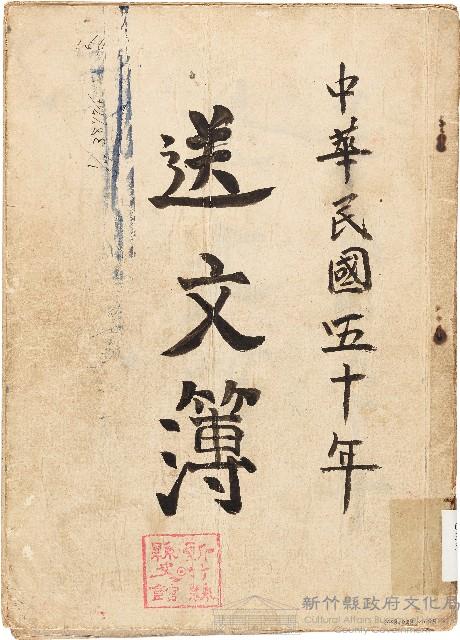 中華民國五十年
送文簿
新竹縣
縣史館
新竹縣政府文化局
Cultural Affairs Bureau
County Government